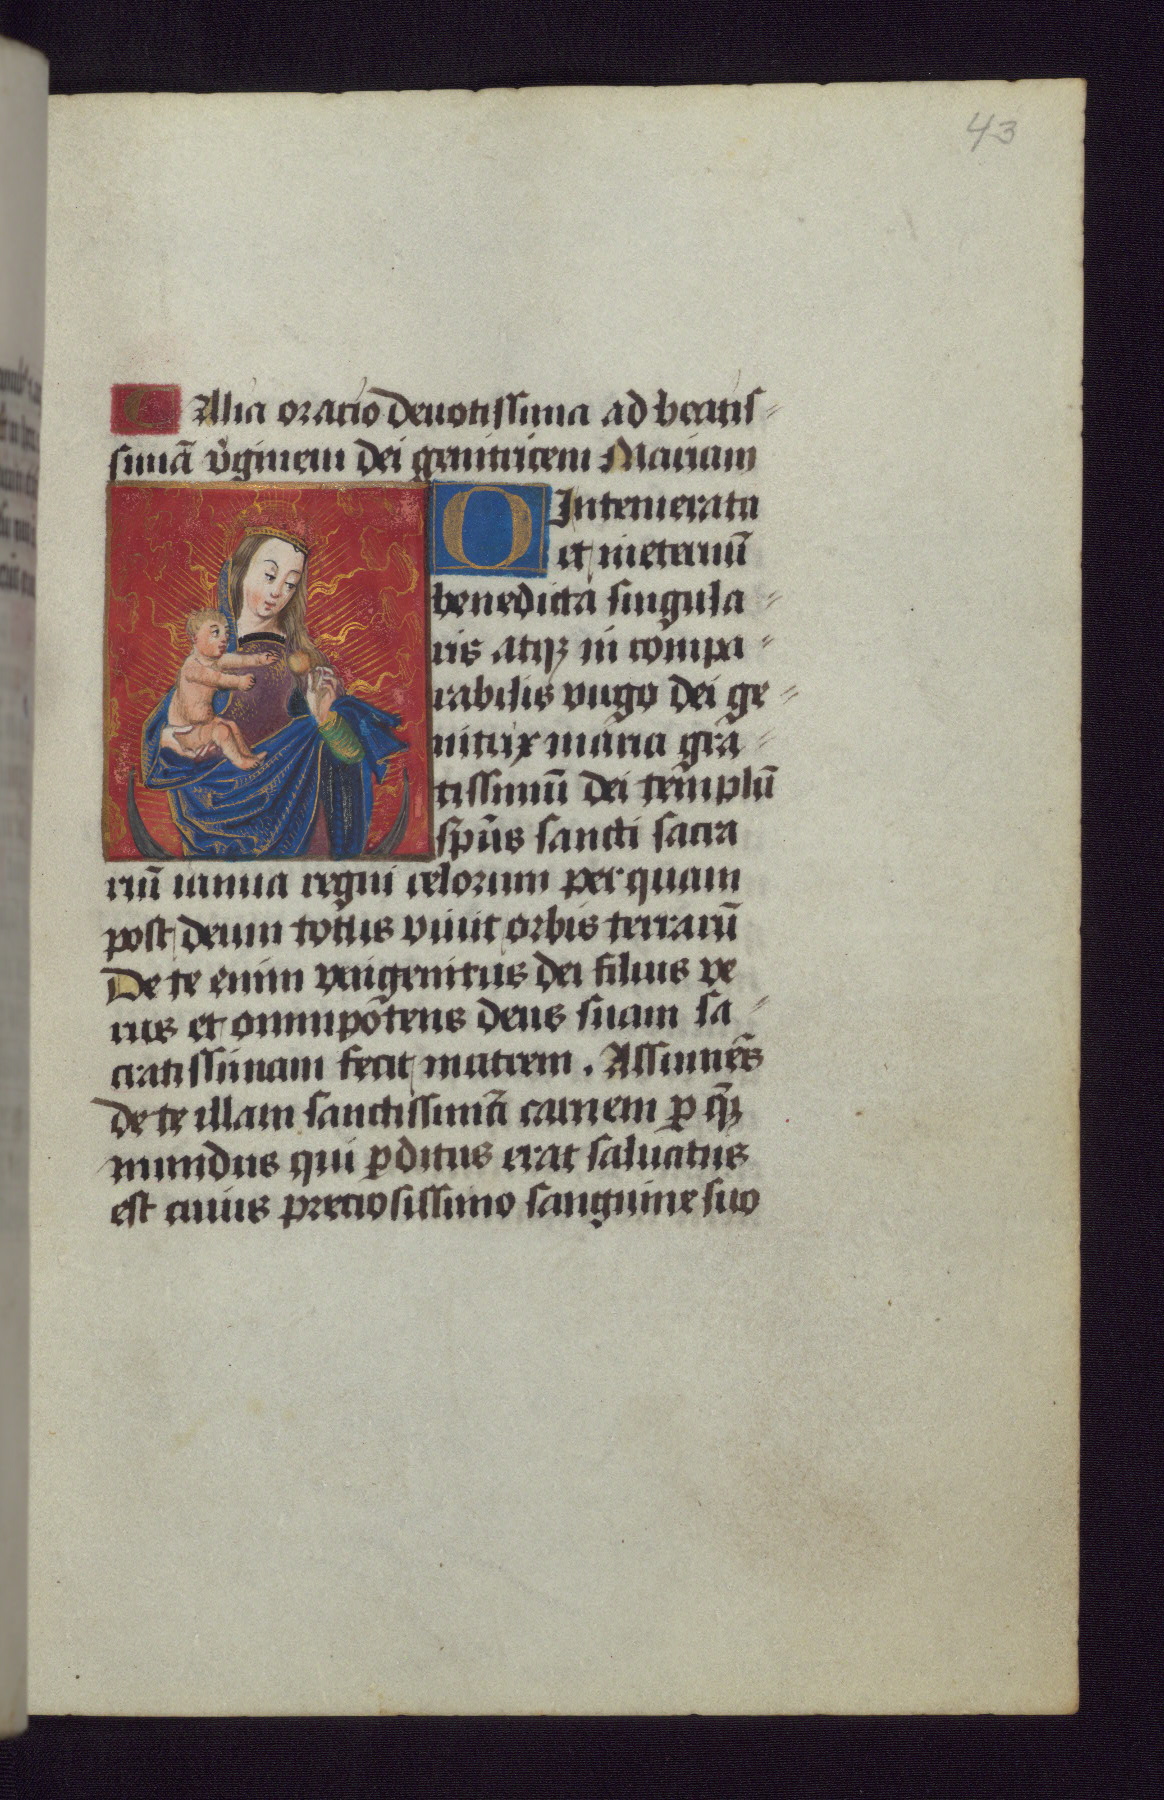 43
C Alia oracio deuotissima ad beatis=
simā v̉ginem dei genitricem Mariam
O Intemerata
et ineternū
benedicta singula=
ris atqȝ in compa=
rabilis virgo dei ge=
nitrix maria gra=
tissimū dei templū
sp̄us sancti sacra
riū ianua regni celorum per quam
post deum totus viuit orbis terrarū
De te enim vnigenitus dei filius ve
rus et omnipōtens deus suam sa=
cratissimam fecit matrem. Assumēs
de te illam sanctissimā carnem ꝑ q̄ȝ
mundus qui ꝑditus erat saluatus
est cuius preciosissimo sanguine suo